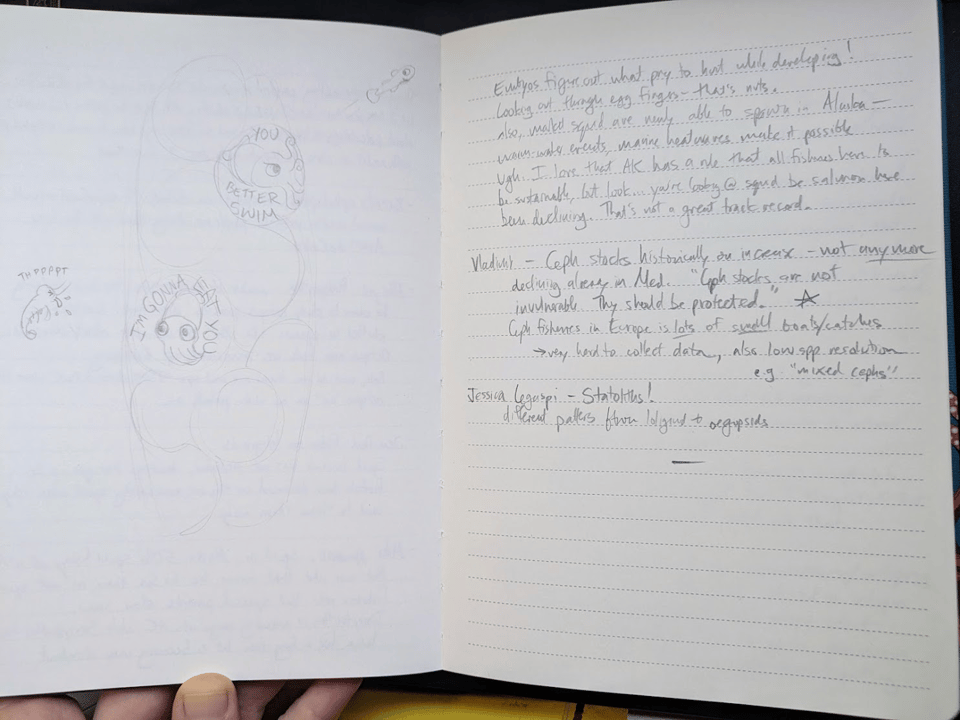 THPPPPT
YOU
BETTER
SWIM
I'M GONNA EAT YOU
Embryos figure out what prey to hunt while developing!
Looking out through egg fingers – that's nuts.
also, market squid are newly able to spawn in Alaska –
warm-water events, marine heatwaves make it possible
Ugh. I love that AK has a rule that all fisheries have to
be sustainable, but look... you're looking @ squid bc salmon have
been declining. That's not a great track record.
Vladimir – Ceph stocks historically on increase – not anymore
declining already in Med. "Ceph stocks are not
invulnerable. They should be protected." ☆
Ceph fisheries in Europe is lots of small boats/catches
→ very hard to collect data, also low spp. resolution
e.g. "mixed cephs"
Jessica – Statoliths!
different pattern from loliginid to oegopsids